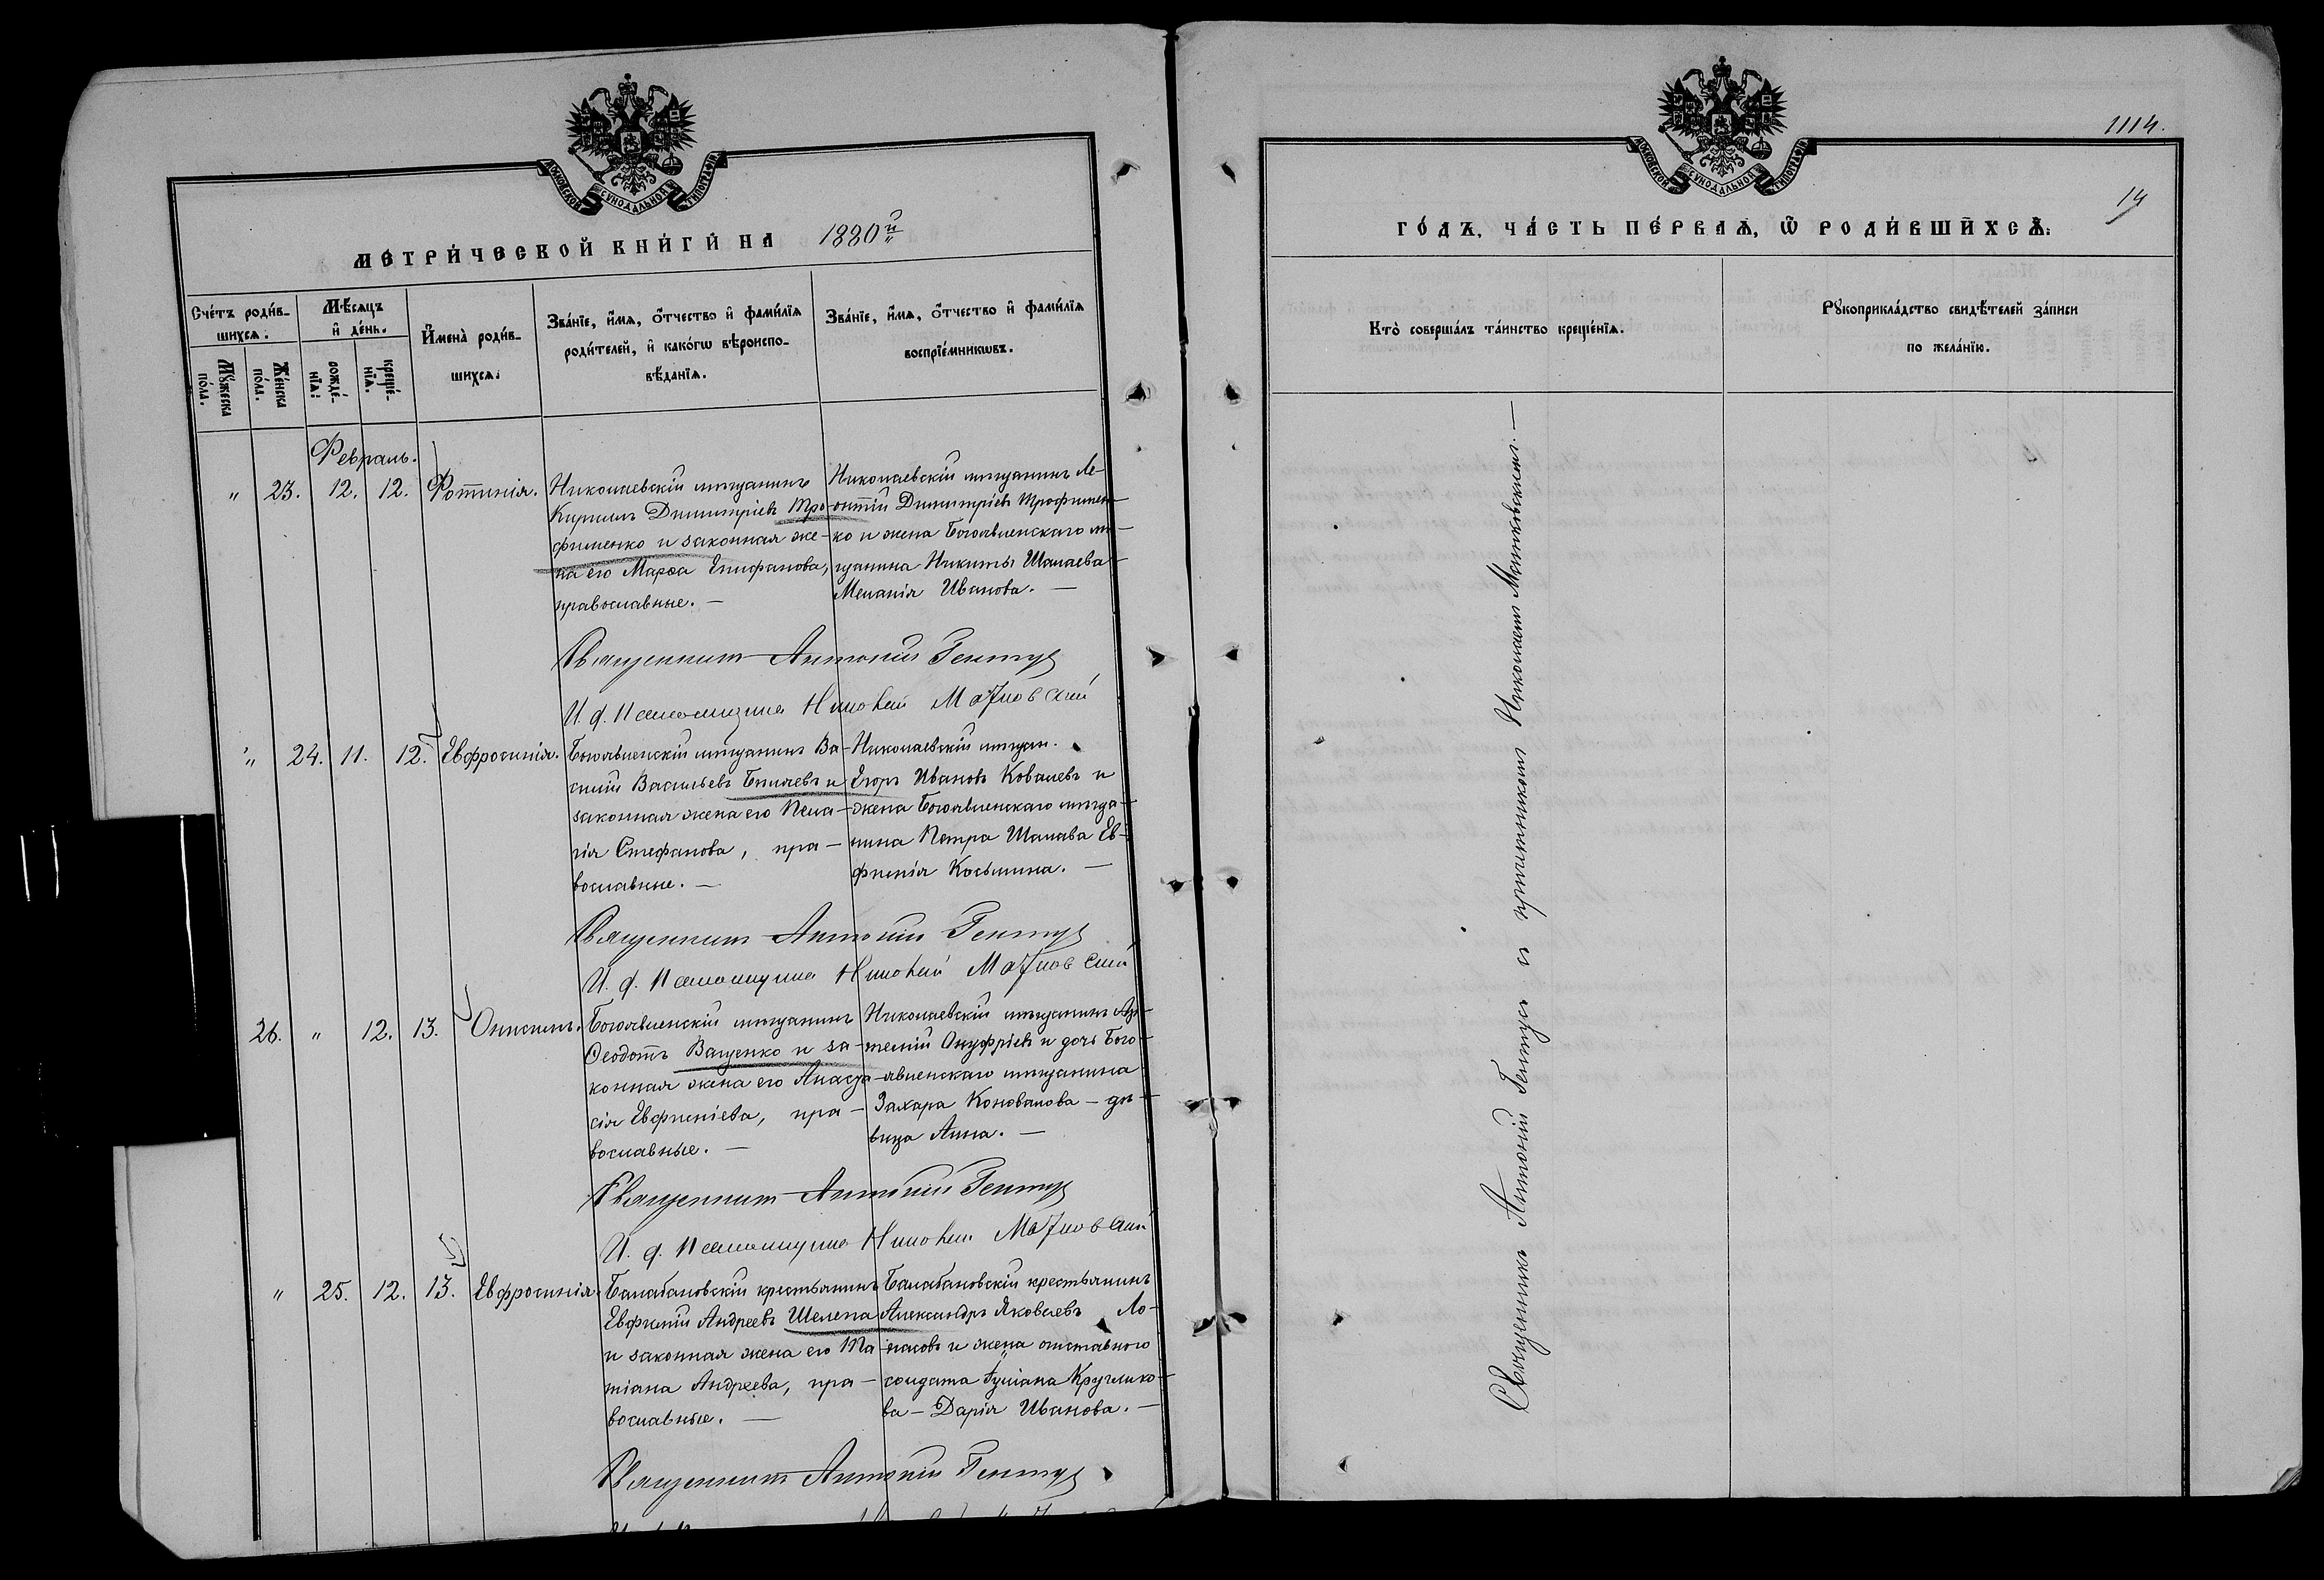 МОСКОВСКОЙ СѴНОДАЛЬНОЙ ТИПОГРАФІИ
МЕТРИ́ЧЕСКОЙ КНИ́ГИ НА 1880й
Сче́тъ роди́в-
шихся.
Мѣ́сяцъ
и҆ де́нь.
Мꙋ́жеска
по́ла.
Же́нска
по́ла.
рожде́-
нїѧ.
креще́-
нїѧ.
И҆мена̀ роди́в-
шихсѧ.
Зва́нїе, и҆́мѧ, ѻ҆́тчество и҆ фами́лїѧ
роди́телей, и҆ како́гѡ вѣроиспо-
вѣ́данїѧ.
Зва́нїе, и҆́мѧ, ѻ҆́тчество и҆ фами́лїѧ
воспрїе́мникѡвъ.
Февраль.
" 23. 12. 12. Фотинія.
Николаевскій мѣщанинъ
Кириллъ Димитріевъ Тро-
фименко и законная же-
на его Марѳа Епифанова,
православные. —
Николаевскій мѣщанинъ Ле-
онтій Димитріевъ Трофимен-
ко и жена Богоявленскаго мѣ-
щанина Никиты Шалаева
Меланія Иванова. —
Священникъ Антоній Гентуз
И. д. Псаломщика Николай
" 24. 11. 12. Евфросинія.
Богоявленскій мѣщанинъ Ва-
силій Васильевъ Бѣляевъ и
законная жена его Пела-
гія Стефанова, пра-
вославные. —
Николаевскій мѣщан.
Егоръ Ивановъ Ковалевъ и
жена Богоявленскаго мѣща-
нина Петра Шалава Ев-
фимія Косьмина. —
Священникъ Антоній Гентуз
И. д. Псаломщика Николай
26. " 12. 13. Онисимъ.
Богоявленскій мѣщанинъ
Ѳеодотъ Ващенко и за-
конная жена его Анаста-
сія Евфиміева, пра-
вославные. —
Николаевскій мѣщанинъ Ар-
темій Онуфріевъ и дочь Бого-
явленскаго мѣщанина
Захара Коновалова — дѣ-
вица Анна. —
Священникъ Антоній Гентуз
И. д. Псаломщика Николай
" 25. 12. 13. Евфросинія.
Балабановскій крестьянинъ
Евфимій Андреевъ Шелепа
и законная жена его Та-
тіана Андреева, пра-
вославные. —
Балабановскій крестьянинъ
Александръ Яковлевъ Ло-
и жена отставного
солдата Кругляко-
ва — Дарія Иванова. —
Священникъ Антоній Гентуз
МОСКОВСКОЙ СѴНОДАЛЬНОЙ ТИПОГРАФІИ
1114.
14
ГО́ДЪ, ЧА́СТЬ ПЕ́РВАѦ, Ѿ РОДИ́ВШИХСѦ.
Кто̀ соверша́лъ та́инство креще́нїѧ.
Рꙋкоприкла́дство свидѣ́телей за́писи
по жела́нїю.
Священникъ Антоній Гентузъ съ причетникомъ Николаемъ